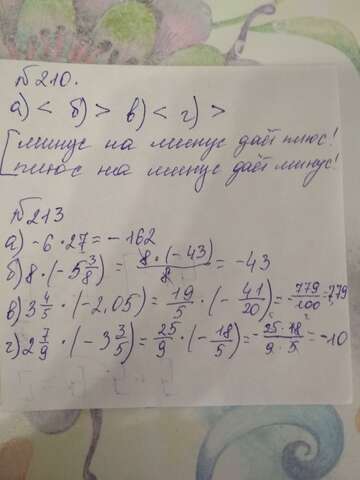 №210.
а) < б) > в) < г) >
минус на минус даёт плюс!
плюс на минус даёт минус!
№213
а) -6 · 27 = -162
б) 8 · (-5 3/8) = 8 · (-43)/8 = -43
в) 3 4/5 · (-2,05) = 19/5 · (-41/20) = -779/100 = 7,79
г) 2 7/9 · (-3 3/5) = 25/9 · (-18/5) = -25·18/9·5 = -10